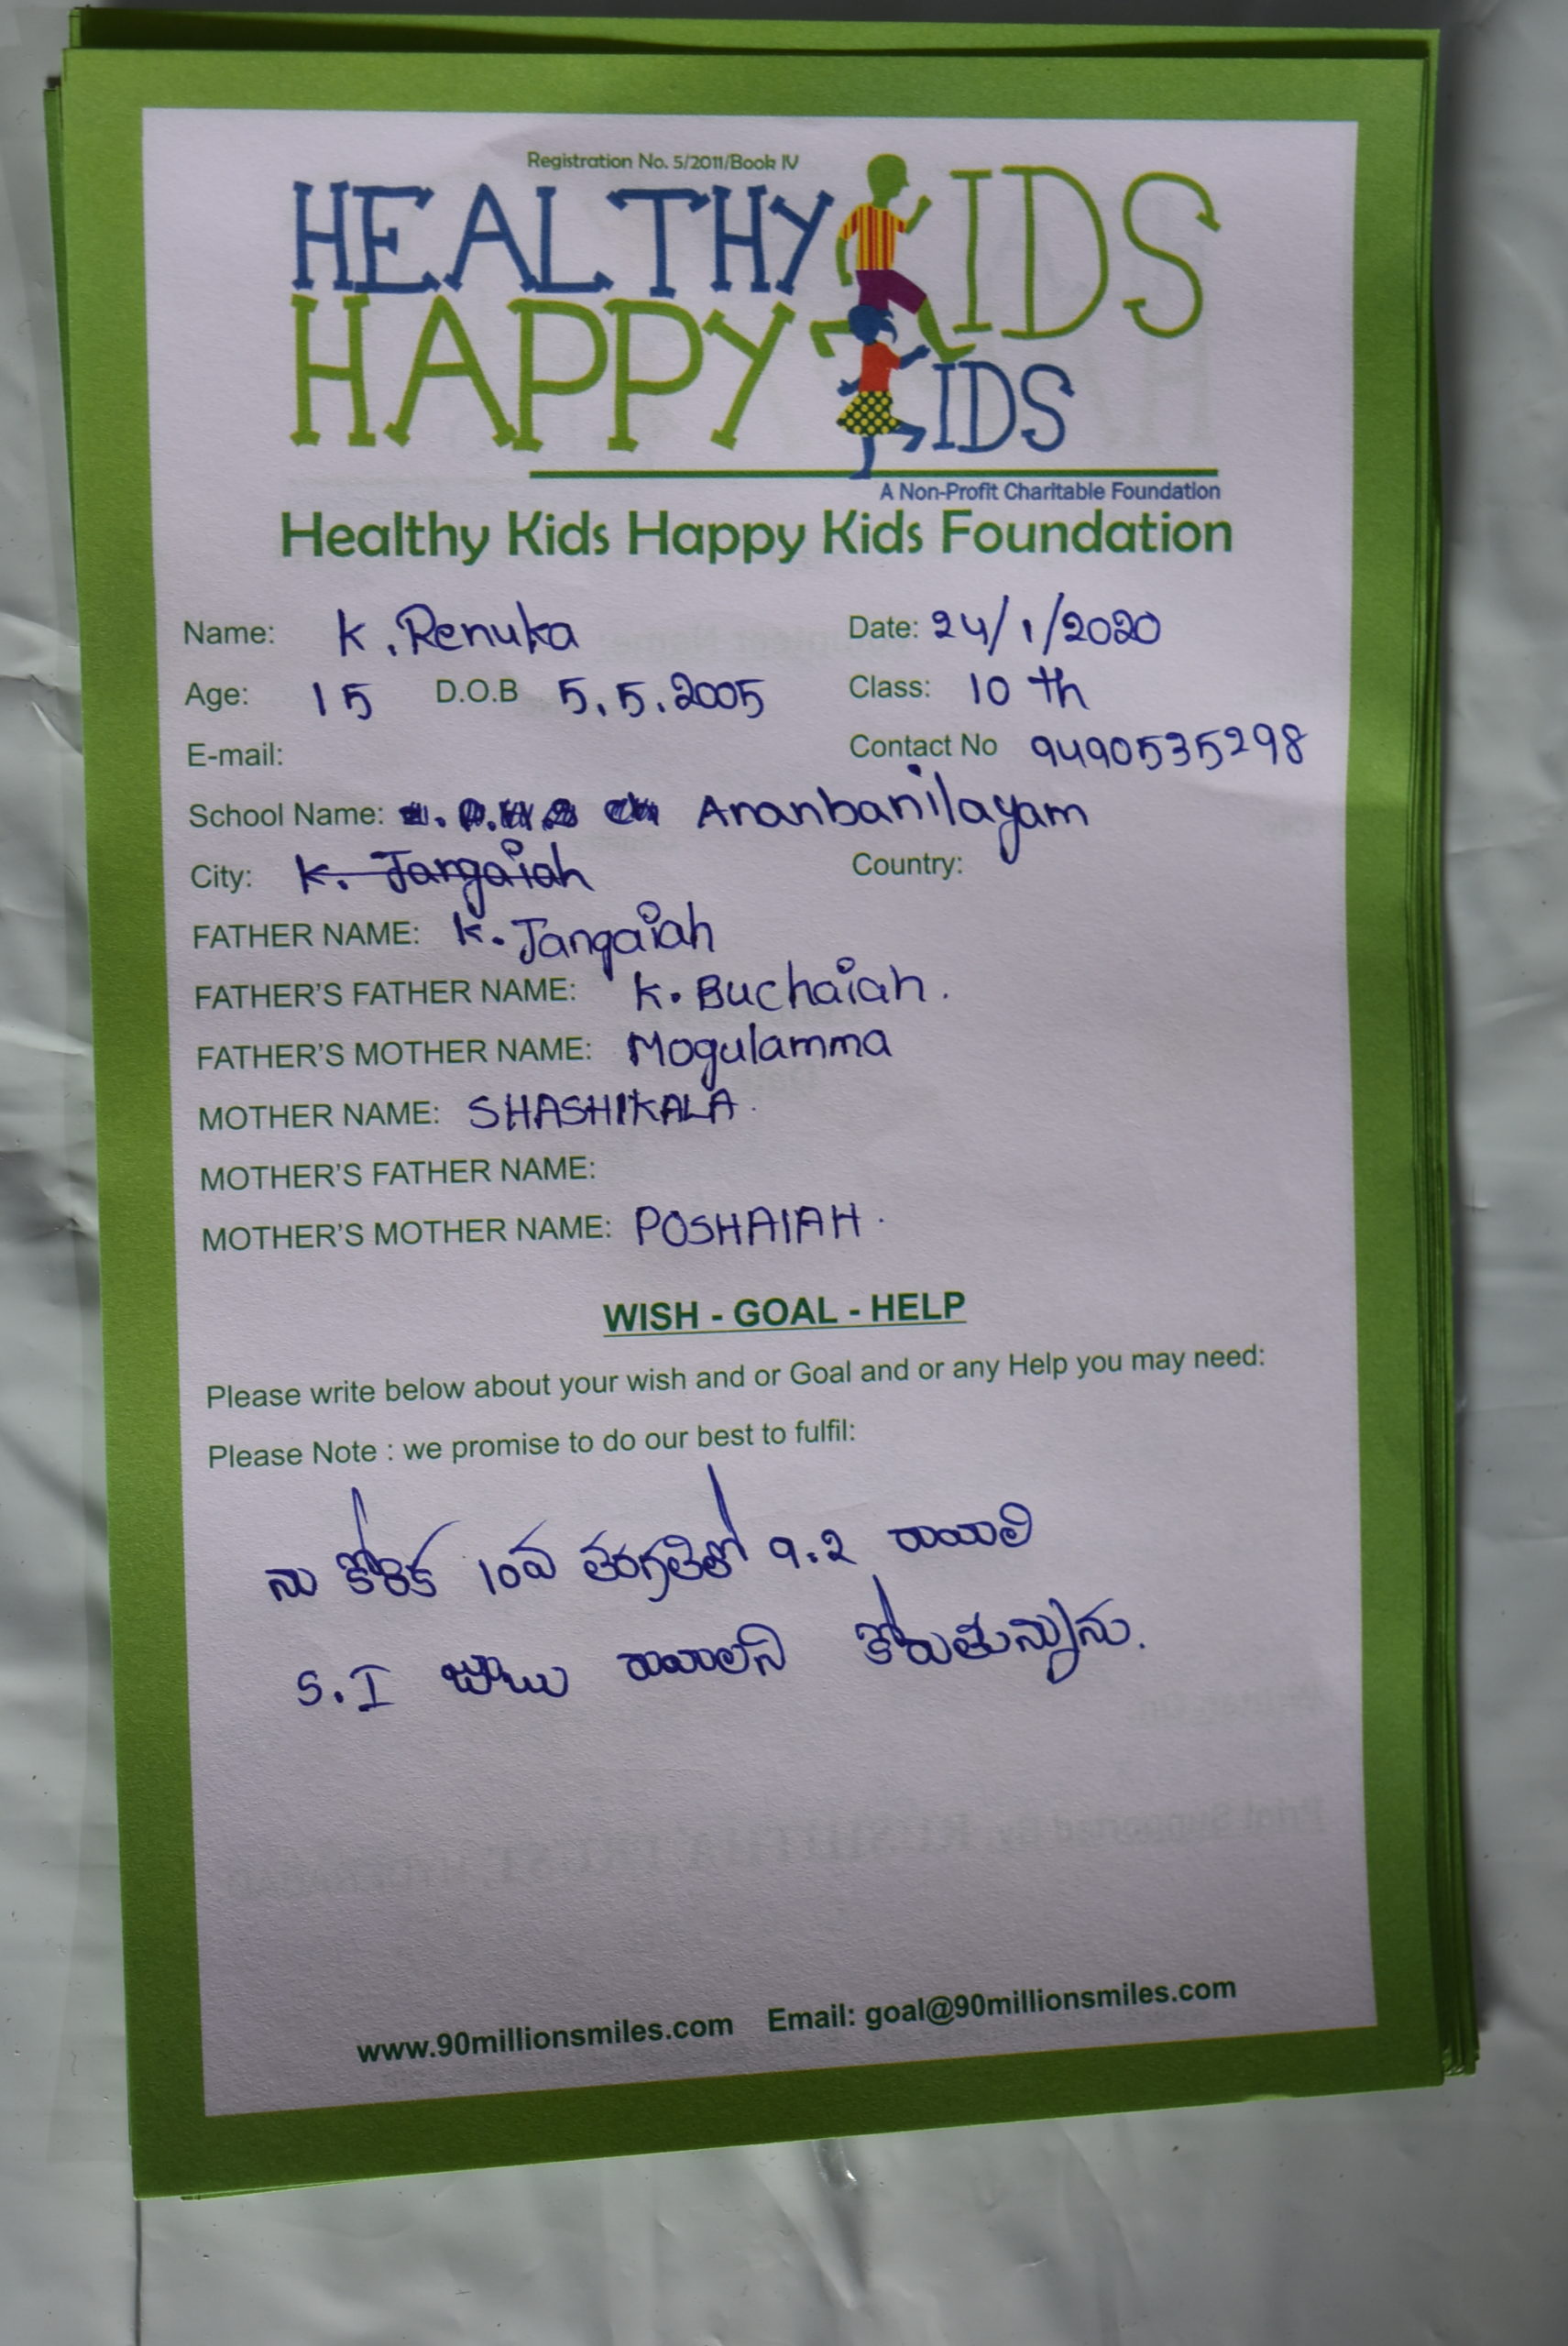 Registration No. 5/2011/Book IV
HEALTHY KIDS
HAPPY KIDS
A Non-Profit Charitable Foundation
Healthy Kids Happy Kids Foundation
Name: K. Renuka Date: 24/1/2020
Age: 15 D.O.B 5.5.2005 Class: 10 th
E-mail: Contact No 9490535298
School Name: Ananbanilayam
City: K. Jangaiah Country:
FATHER NAME: K. Jangaiah
FATHER'S FATHER NAME: K. Buchaiah.
FATHER'S MOTHER NAME: Mogulamma
MOTHER NAME: SHASHIKALA.
MOTHER'S FATHER NAME:
MOTHER'S MOTHER NAME: POSHAIAH.
WISH - GOAL - HELP
Please write below about your wish and or Goal and or any Help you may need:
Please Note : we promise to do our best to fulfil:
ను కోరిక 10వ తరగతిలో 9.2 రావాలి
S.I రావాలని కోరుతున్నాను.
www.90millionsmiles.com Email: goal@90millionsmiles.com